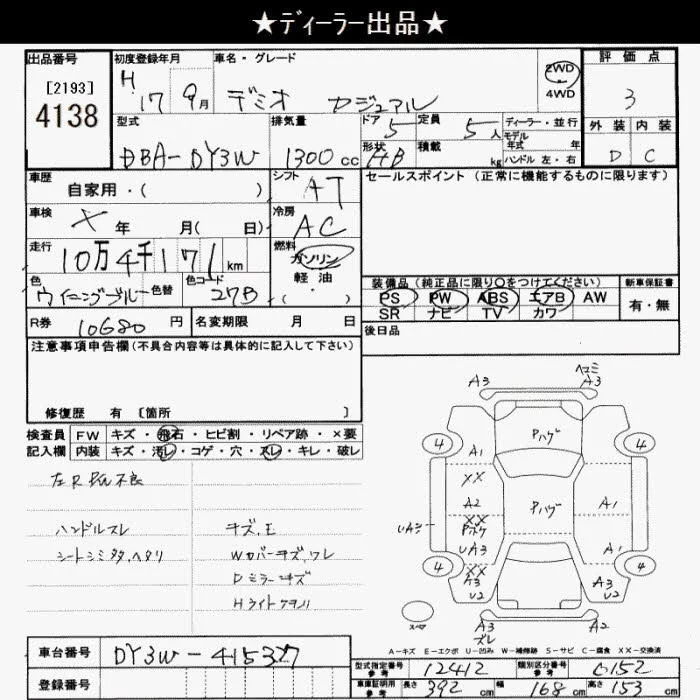 ★ディーラー出品★
出品番号
[2193]
4138
初度登録年月
H 17 9月
車名・グレード
デミオ カジュアル
2WD
4WD
評価点
3
型式
DBA-DY3W
排気量
1300cc
ドア 5
形状 HB
定員 5人
積載 kg
ディーラー・並行
モデル年式 年
ハンドル 左・右
外装 内装
D C
車歴
自家用・( )
シフト AT
セールスポイント (正常に機能するものに限ります)
車検 X 年 月( 日)
冷房 AC
走行 10万4千171km
燃料 ガソリン
軽油
・( )
色 ウイニングブルー 色替
色コード 27B
装備品 (純正品に限り○をつけてください)
PS PW ABS エアB AW
SR ナビ TV カワ
新車保証書
有・無
R券 10680円
名変期限 月 日
後日品
注意事項申告欄(不具合内容等は具体的に記入して下さい)
修復歴 有 [箇所 ]
検査員記入欄
FW キズ・飛石・ヒビ割・リペア跡・×要
内装 キズ・汚レ・コゲ・穴・スレ・キレ・破レ
左R 不良
ハンドルスレ
シートシミ タタ、ヘタリ
キズ,E
Wカバーキズ,ワレ
Dミラーキズ
Hライトケヅリ
A3
ヘコミ
A3
Pハゲ
4 4
A1
XX
A2
Pハゲ
A1
XX
Pボケ
UA3
UA3
A1
4 4
XX
A3
U2
A3
U2
スペア
A3
ズレ
A2
A-キズ E-エクボ U-凹み W-補修跡 S-サビ C-腐食 XX-交換済
車台番号 DY3W-415327
登録番号
型式指定番号 参考 12412
類別区分番号 参考 0152
車庫証明用 参考 長さ 392cm 幅 168cm 高さ 153cm